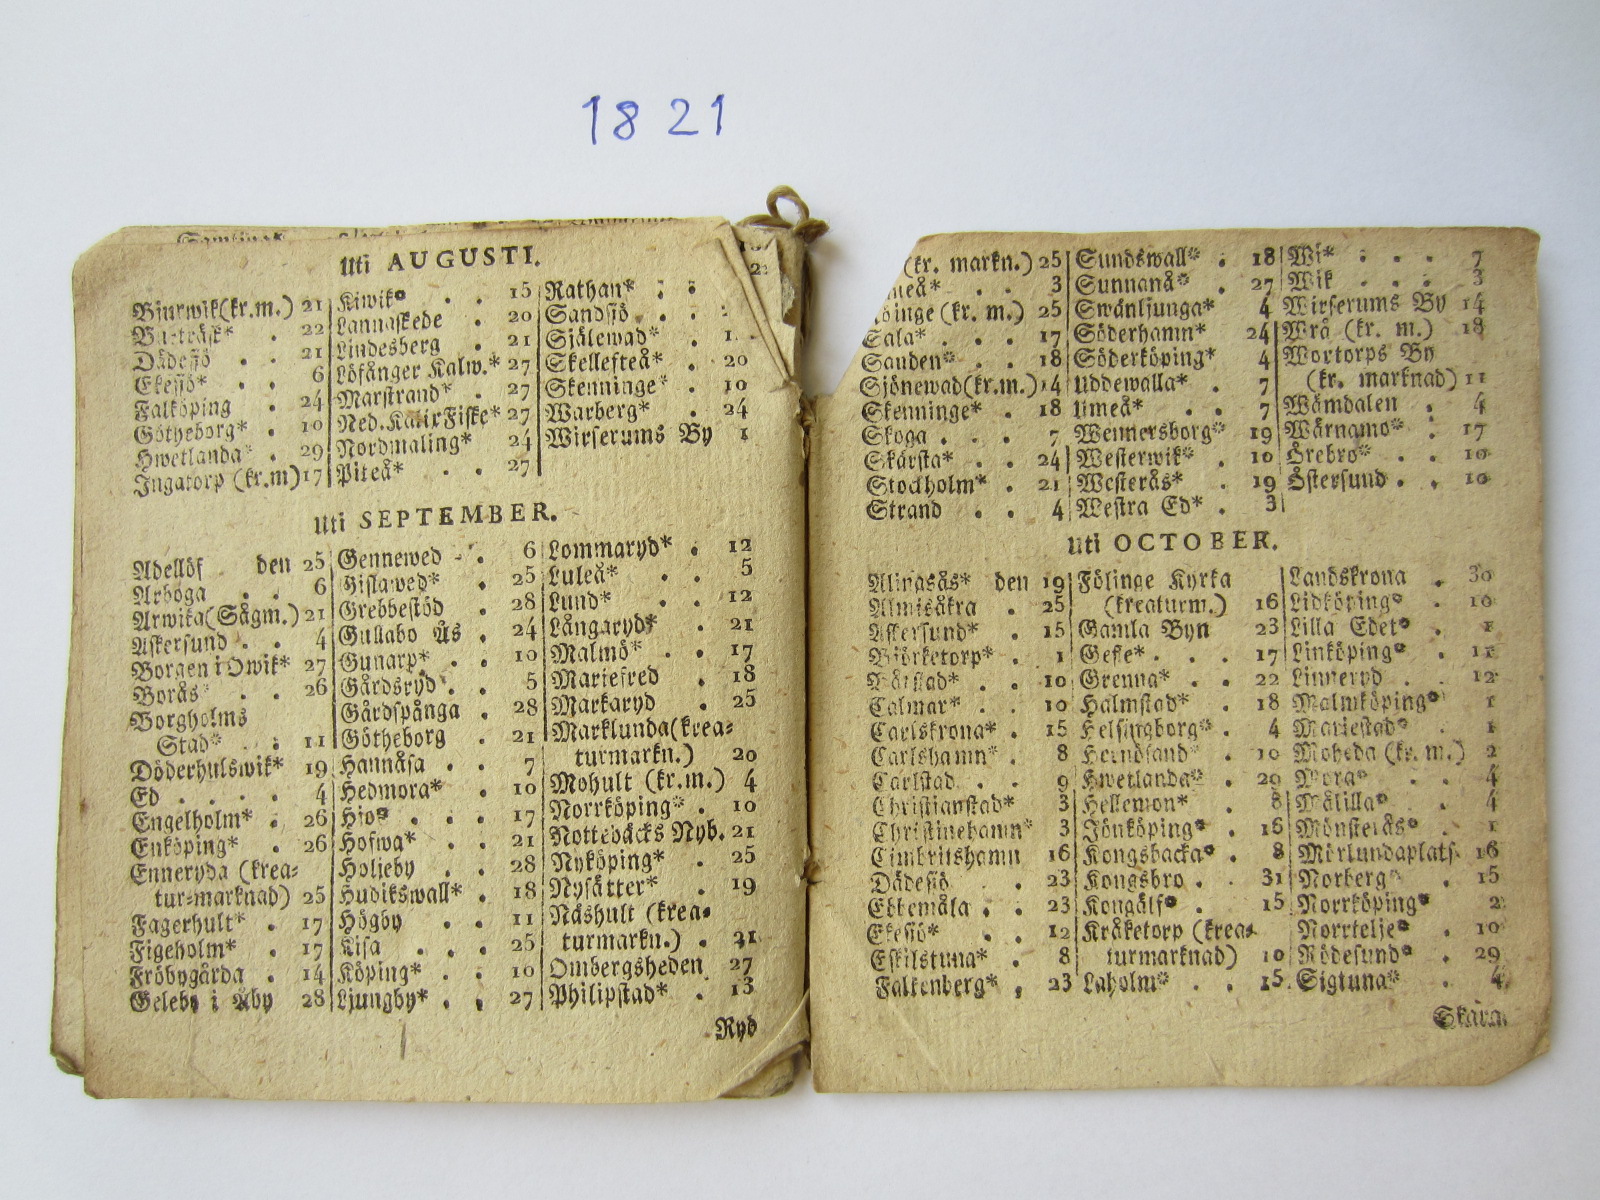 1821
Uti AUGUSTI.
Bjurwik(kr.m.) 21
Burträsk* . 22
Dädesjö . . 21
Ekesjö* . . 6
Falköping . 24
Götheborg* . 10
Hwetlanda* . 29
Ingatorp (kr.m) 17
Kiwik* . . 15
Lannaskede . 20
Lindesberg . 21
Löfånger Kalw.* 27
Marstrand* . 27
Ned.Kalix Fiske* 27
Nordmaling* 24
Piteå* . . 27
Nathan* . .
Sandsjö . .
Själewad* . 1
Skellefteå* . 20
Skenninge* . 10
Warberg* . 24
Wirserums By 1
Uti SEPTEMBER.
Adellöf den 25
Arboga . . 6
Arwika(Sågm.) 21
Askersund . . 4
Borgen i Owik* 27
Borås* . . 26
Borgholms
Stad* . . 11
Döderhulswik* 19
Ed . . . . 4
Engelholm* . 26
Enköping* . 26
Enneryda (krea-
tur-marknad) 25
Fagerhult* . 17
Figeholm* . 17
Fröbygårda . 14
Geleby i Åby 28
Gennewed . . 6
Gislawed* . 25
Grebbestöd . 28
Gullabo Ås . 24
Gunarp* . . 10
Gårdsryd . . 5
Gårdspånga . 28
Götheborg . 21
Hannåsa . . 7
Hedmora* . 10
Hjo* . . . 17
Hofwa* . . 21
Holjeby . . 28
Hudikswall* . 18
Högby . . 11
Kisa . . . 25
Köping* . . 10
Ljungby* . . 27
Lommaryd* . 12
Luleå* . . 5
Lund* . . 12
Långaryd* . 21
Malmö* . . 17
Mariefred . 18
Markaryd . 25
Marklunda(krea-
turmarkn.) 20
Mohult (kr.m.) 4
Norrköping* . 10
Nottebäcks Nyb. 21
Nyköping* . 25
Nysätter* . 19
Näshult (krea-
turmarkn.) . 21
Ombergsheden 27
Philipstad* . 13
Ryd
(kr. markn.) 25
3
(kr. m.) 25
Sala* . . 17
Sanden* . . 18
Sjönewad(kr.m.) 14
Skenninge* . 18
Skoga . . . 7
Skärsta* . . 24
Stockholm* . 21
Strand . . 4
Sundswall* . 18
Sunnanå* . 27
Swänljunga* 4
Söderhamn* 24
Söderköping* 4
Uddewalla* . 7
Umeå* . . 7
Wennersborg* 19
Westerwik* . 10
Westerås* . 19
Westra Ed* . 3
Wi* . . . 7
Wik . . . 3
Wirserums By 14
Wrå (kr. m.) 18
Wortorps By
(kr. marknad) 11
Wämdalen . 4
Wärnamo* . 17
Örebro* . . 10
Östersund . . 10
Uti OCTOBER.
Alingsås* den 19
Almisåkra . 25
Askersund* . 15
Björketorp* . 1
Båstad* . . 10
Calmar* . . 10
Carlskrona* . 15
Carlshamn* . 8
Carlstad . . 9
Christianstad* 3
Christinehamn* 3
Cimbritshamn 16
Dädesjö . 23
Ebbemåla . . 23
Ekesjö* . . 12
Eskilstuna* . 8
Falkenberg* . 23
Fölinge Kyrka
(kreaturm.) 16
Gamla Byn 23
Gefle* . . . 17
Grenna* . . 22
Halmstad* . 18
Helsingborg* . 4
Hernösand* . 10
Hwetlanda* . 29
Hellewon* . 8
Jönköping* . 16
Kongsbacka* . 8
Kongsbro . . 31
Kongälf* . . 15
Kråketorp (krea-
turmarknad) 10
Laholm* . . 15
Landskrona . 30
Lidköping* . 10
Lilla Edet* . 1
Linköping* . 11
Linneryd . 12
Malmköping* 1
Mariestad* . 1
Moheda (kr. m.) 2
Mora* . . 4
Målilla* . 4
Mönsterås* . 1
Mörlundaplats 16
Norberg* . 15
Norrköping* 2
Norrtelje* . 10
Rödesund* . 29
Sigtuna* . 4